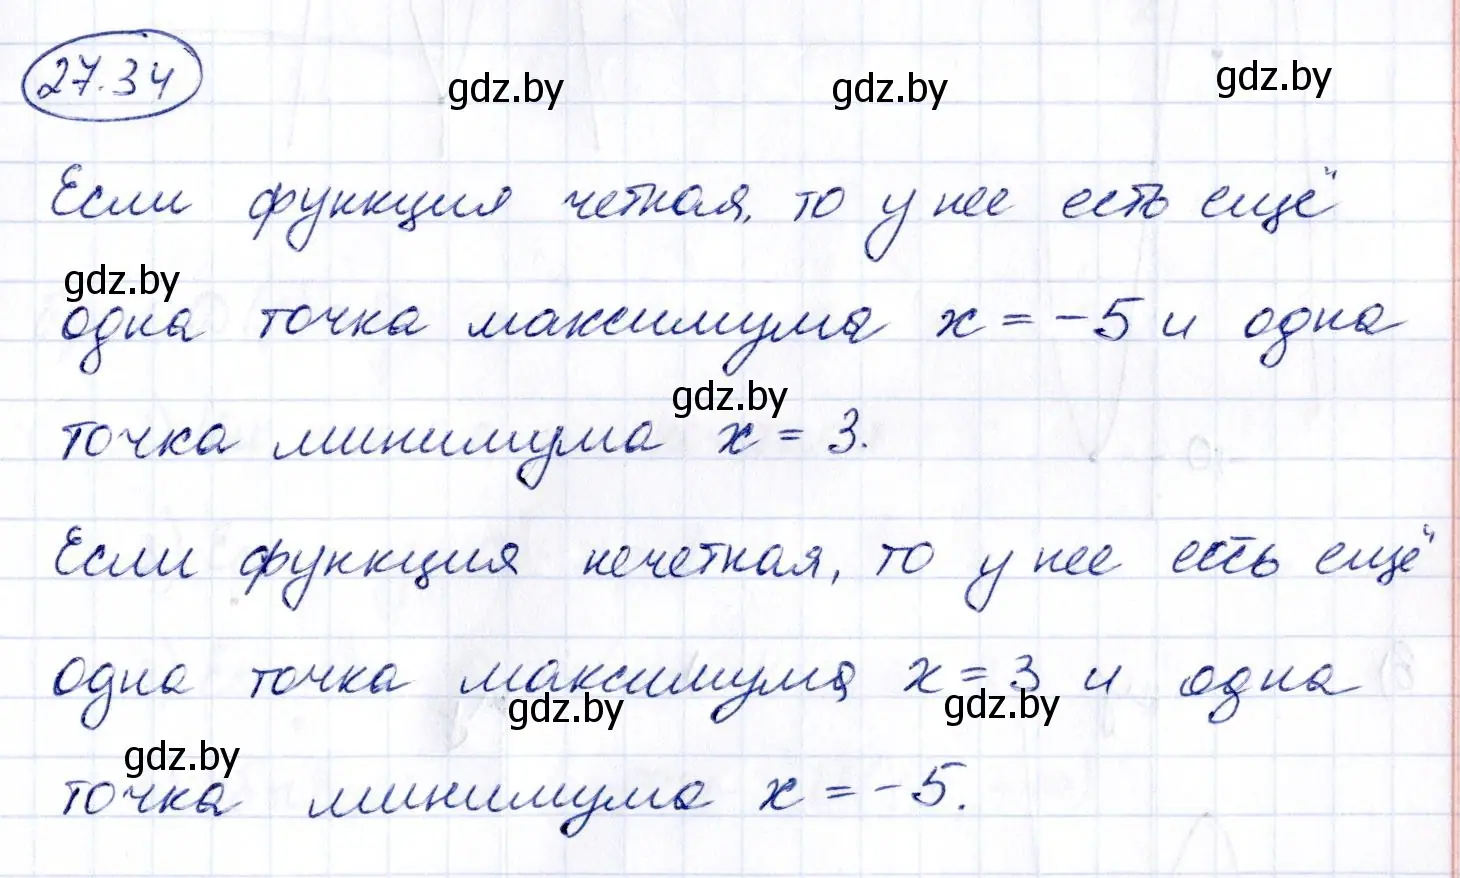 27.34
gdz.by gdz.by gdz.by
Если функция четная, то у нее есть ещё
gdz.by
одна точка максимума x = -5 и одна
gdz.by
точка минимума x = 3.
Если функция нечетная, то у нее есть ещё
одна точка максимума x = 3 и одна
gdz.by gdz.by
gdz.by
точка минимума x = -5.